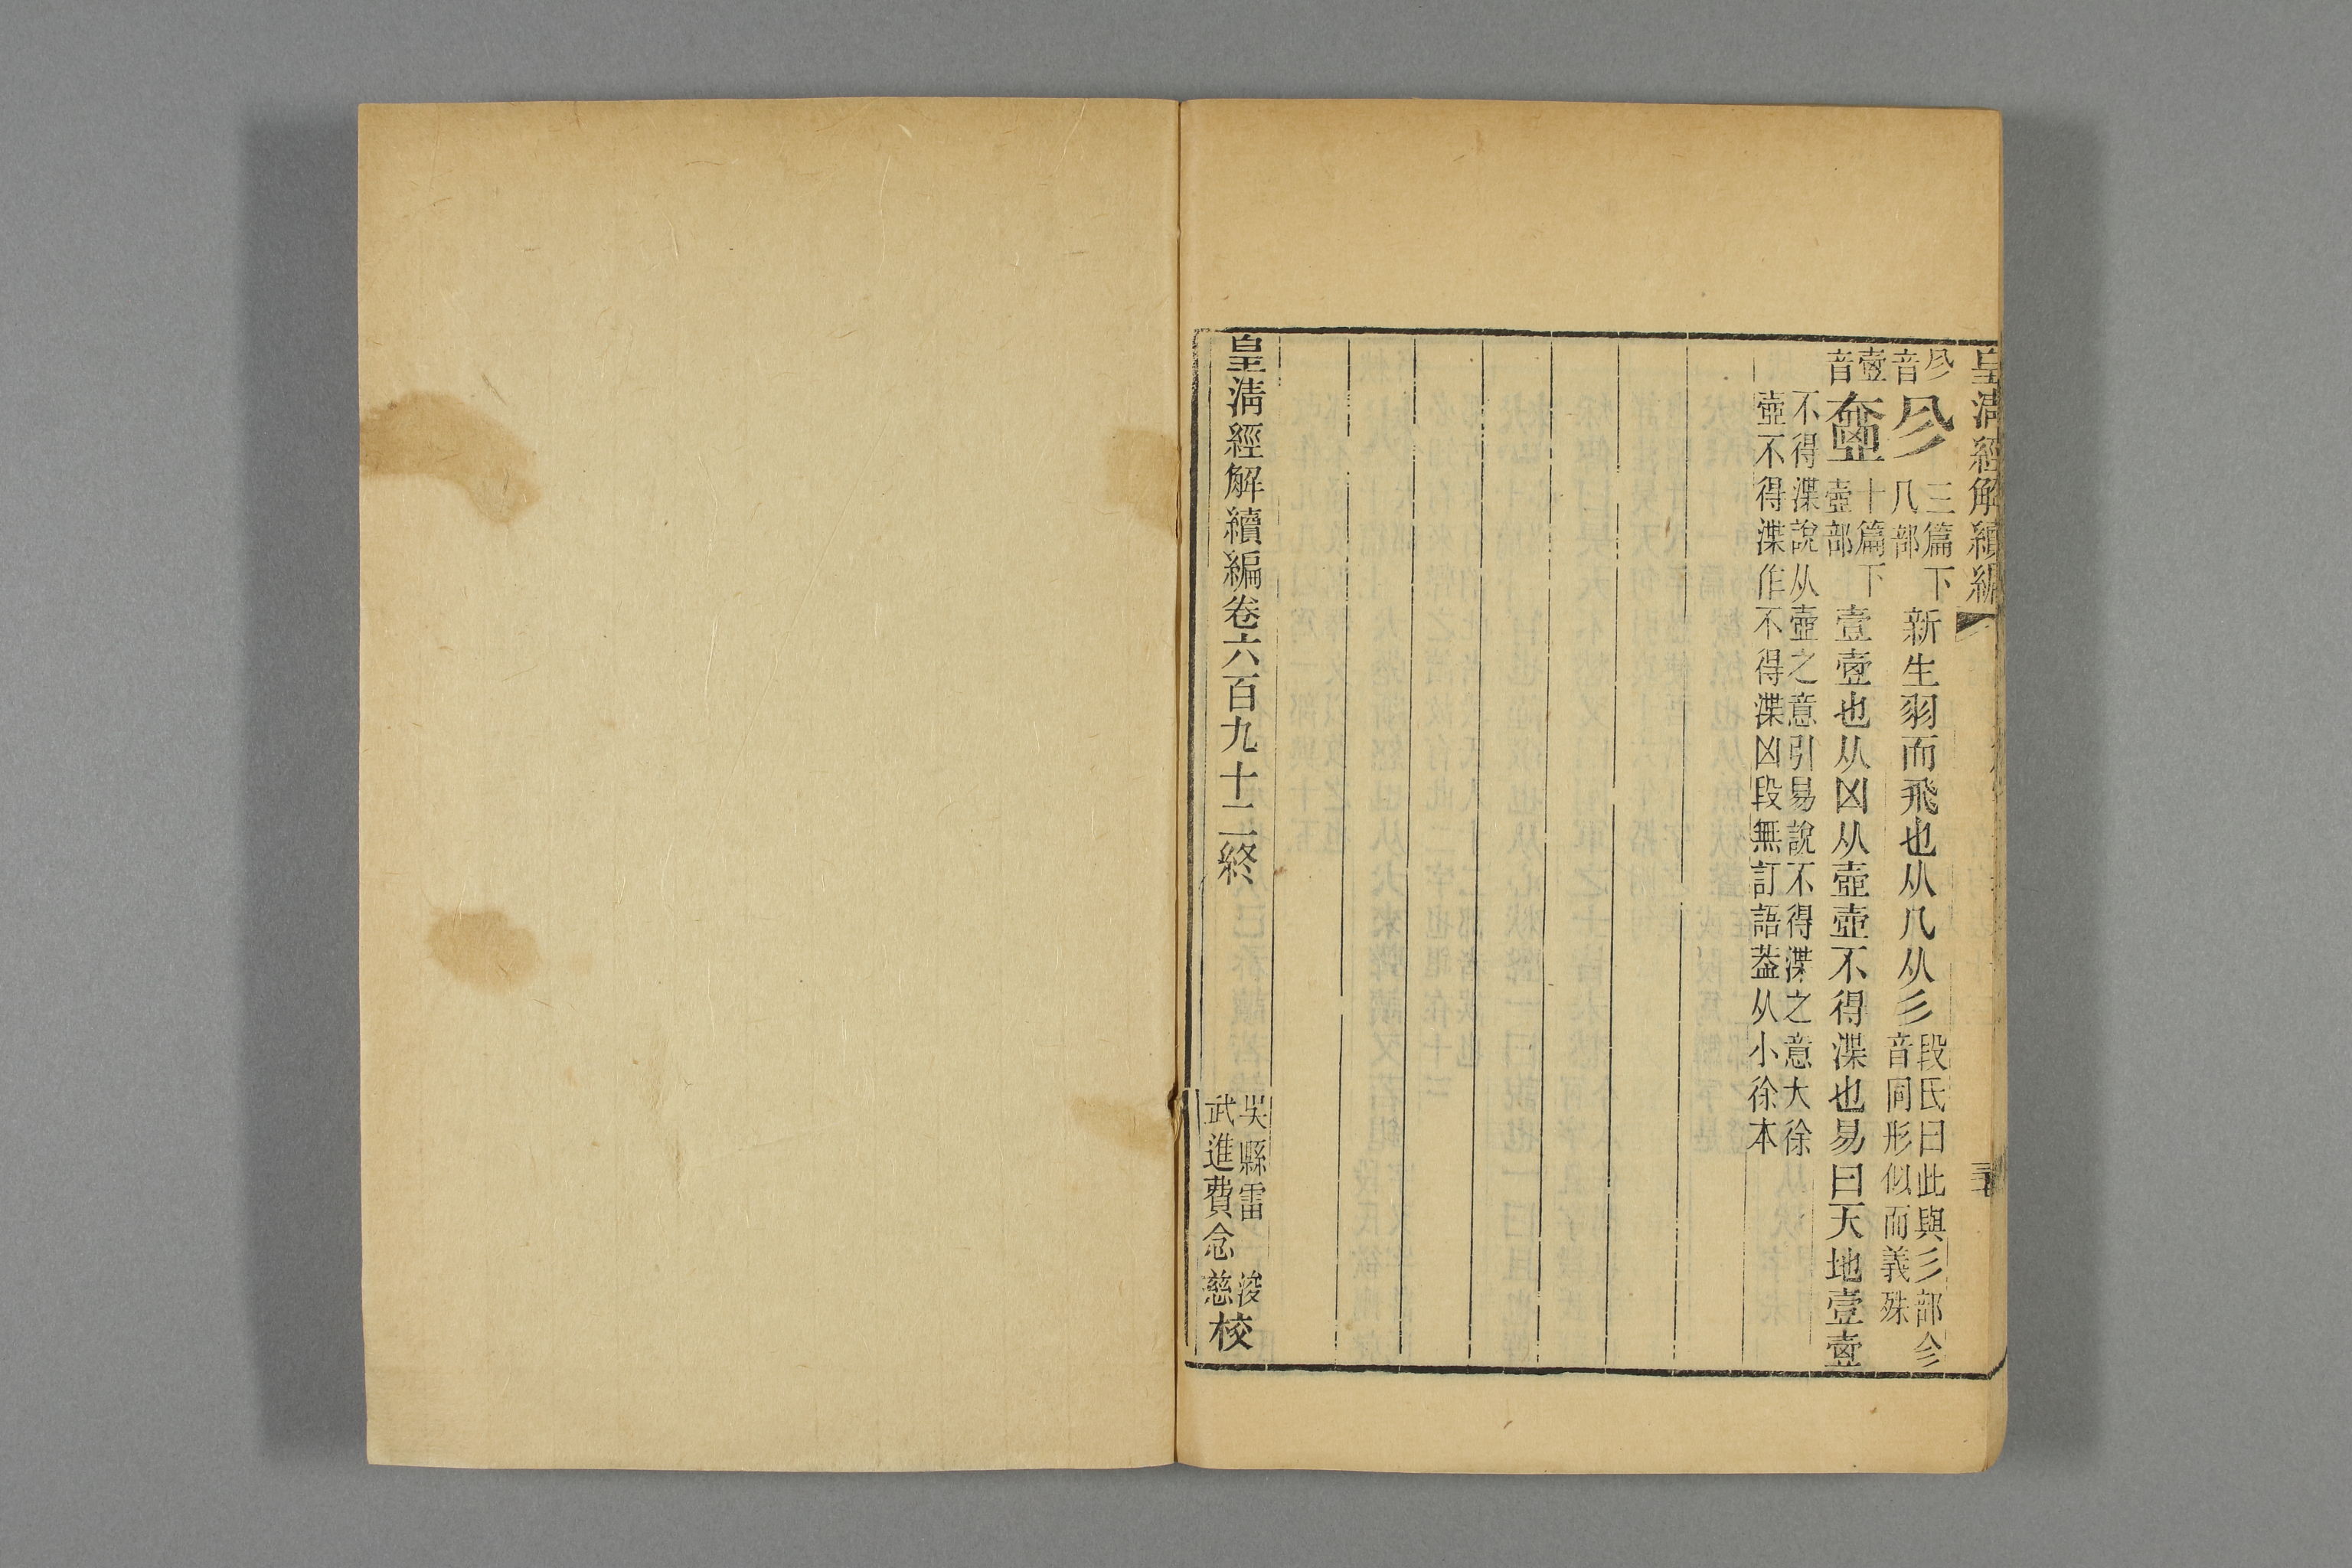 皇清經解續編
𠘱音 𠘱 三篇下几部 新生羽而飛也从几从彡 段氏曰此與彡部㐱音同形似而義殊
𡔷音 𡔷 十篇下壺部 壹𡔷也从凶从壺壺不得渫也易曰天地壹𡔷
不得渫說从壺之意引易說不得渫之意大徐
壺不得渫作不得渫凶段無訂語葢从小徐本
皇淸經解續編卷六百九十二終
吳縣雷浚
武進費念慈校